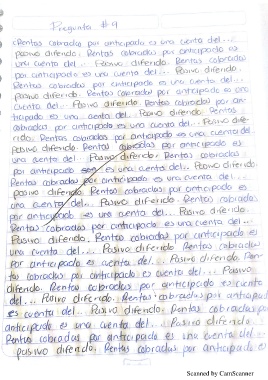 Pregunta # 4
¿Rentas cobradas por anticipado es una cuenta del...
pasivo diferido. Rentas cobradas por anticipado es
una cuenta del.. Pasivo diferido. Rentas cobradas
por anticipado es una cuenta del... Pasivo diferido.
Rentas cobradas por anticipado es una cuenta del..
Pasivo diferido. Rentas cobradas por anticipado es una
cuenta del.. Pasivo diferido. Rentas cobradas por an-
ticipado es una cuenta del.. Pasivo diferido. Rentas
cobradas, por anticipado es una cuenta del.. Pasivo dife-
rido. Rentas cobradas por anticipado es una cuenta del
Pasivo diferido. Rentas cobradas por anticipado es
una cuenta del.. Pasivo diferido. Rentas cobradas
por anticipado es una cuenta del... Pasivo diferido.
Rentas cobradas por anticipado es una cuenta del..
pasivo diferido. Rentas cobradas por anticipado es
una cuenta del.. Pasivo diferido. Rentas cobradas
por anticipado es una cuenta del.. Pasivo diferido.
Rentas cobradas por anticipado es una cuenta del..
Pasivo diferido. Rentas cobradas por anticipado es
una cuenta del... Pasivo diferido Rentas cobradas
por anticipado es cuenta del... Pasivo diferido Ren-
tas cobradas por anticipado es cuenta del... Pasivo
diferido. Rentas cobradas por anticipado es cuenta
del... Pasivo diferido. Rentas cobradas por anticipad
es cuenta del... Pasivo diferido. Rentas cobradas por
anticipado es una cuenta del... Pasivo diferido..
Rentas cobradas por anticipado es una cuenta del..
pasivo diferido. Rentas cobradas por anticipado es
Scanned by CamScanner